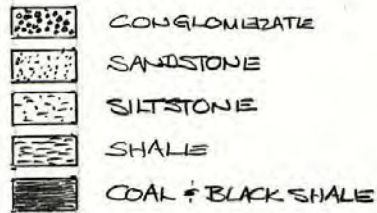 CONGLOMERATE
SANDSTONE
SILTSTONE
SHALE
COAL & BLACK SHALE